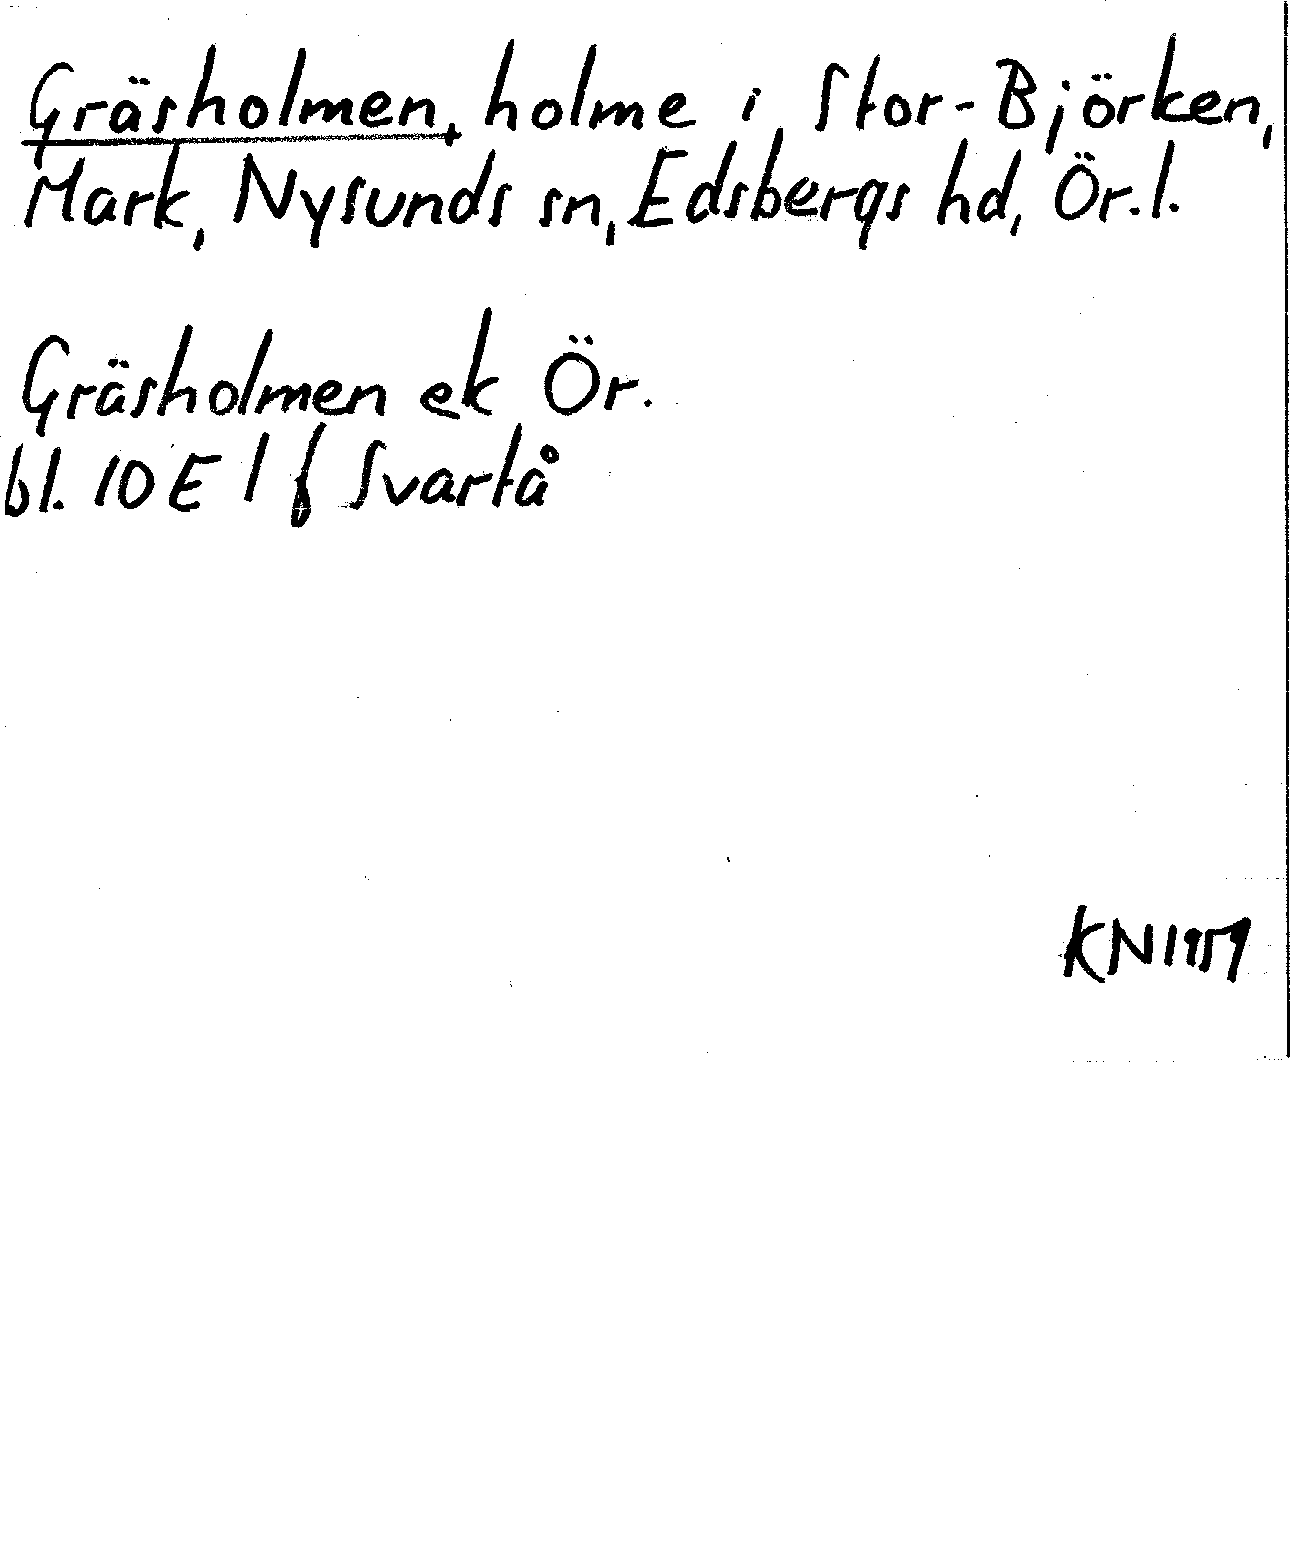 Gräsholmen, holme i Stor-Björken,
Mark, Nysunds sn, Edsbergs hd, Ör. l.
Gräsholmen ek Ör.
bl. 10 E 1 f Svartå
KN 1959